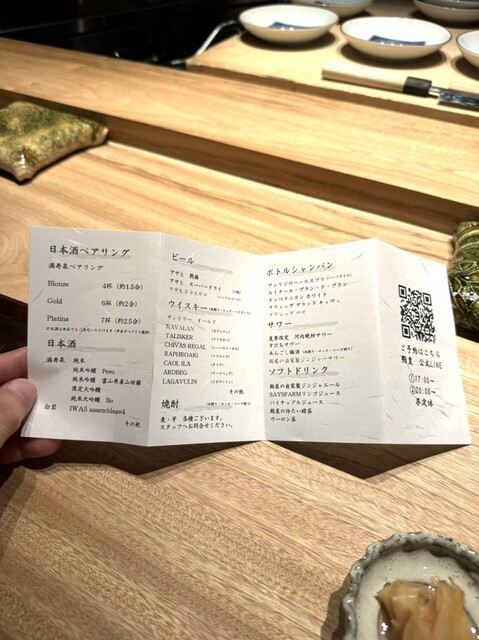 日本酒ペアリング
満寿泉ペアリング
Blonze 4杯 (約1.5合)
Gold 6杯 (約2合)
Platina 7杯 (約2.5合)
日本酒
満寿泉 純米
純米吟醸 Pero
純米吟醸 富山県産山田錦
限定大吟醸
純米大吟醸 Bo
白岩 IWA5 assemblage4
その他
ビール
アサヒ 熟撰
アサヒ スーパードライ
ウイスキー
サントリー オールド
KAVALAN
TALISKER
CHIVAS REGAL
RAPHROAIG
CAOL ILA
ARDBEG
LAGAVULIN
その他
焼酎
麦・芋 各種ございます。
スタッフへお問合せください。
ボトルシャンパン
サワー
すだちサワー
ソフトドリンク
鮨屋の自家製ジンジャエール
SAYSFARMリンゴジュース
パイナップルジュース
鮨屋の冷たい緑茶
ウーロン茶
ご予約はこちら
公式LINE
①17:00〜
②20:00〜
不定休